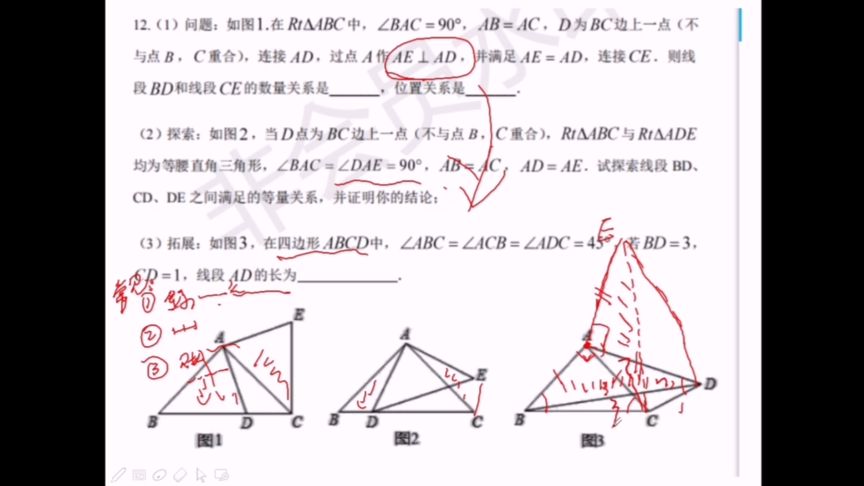 12.(1)问题：如图1.在Rt△ABC中，∠BAC=90°，AB=AC，D为BC边上一点（不
与点B，C重合），连接AD，过点A作AE⊥AD，并满足AE=AD，连接CE．则线
段BD和线段CE的数量关系是______，位置关系是______．
(2)探索：如图2，当D点为BC边上一点（不与点B，C重合），Rt△ABC与Rt△ADE
均为等腰直角三角形，∠BAC=∠DAE=90°，AB=AC，AD=AE．试探索线段BD、
CD、DE之间满足的等量关系，并证明你的结论；
(3)拓展：如图3，在四边形ABCD中，∠ABC=∠ACB=∠ADC=45°若BD=3，
CD=1，线段AD的长为____________．
①
②
③
A E B D C
图1
A E B D C
图2
E A D B C
图3
非会员水